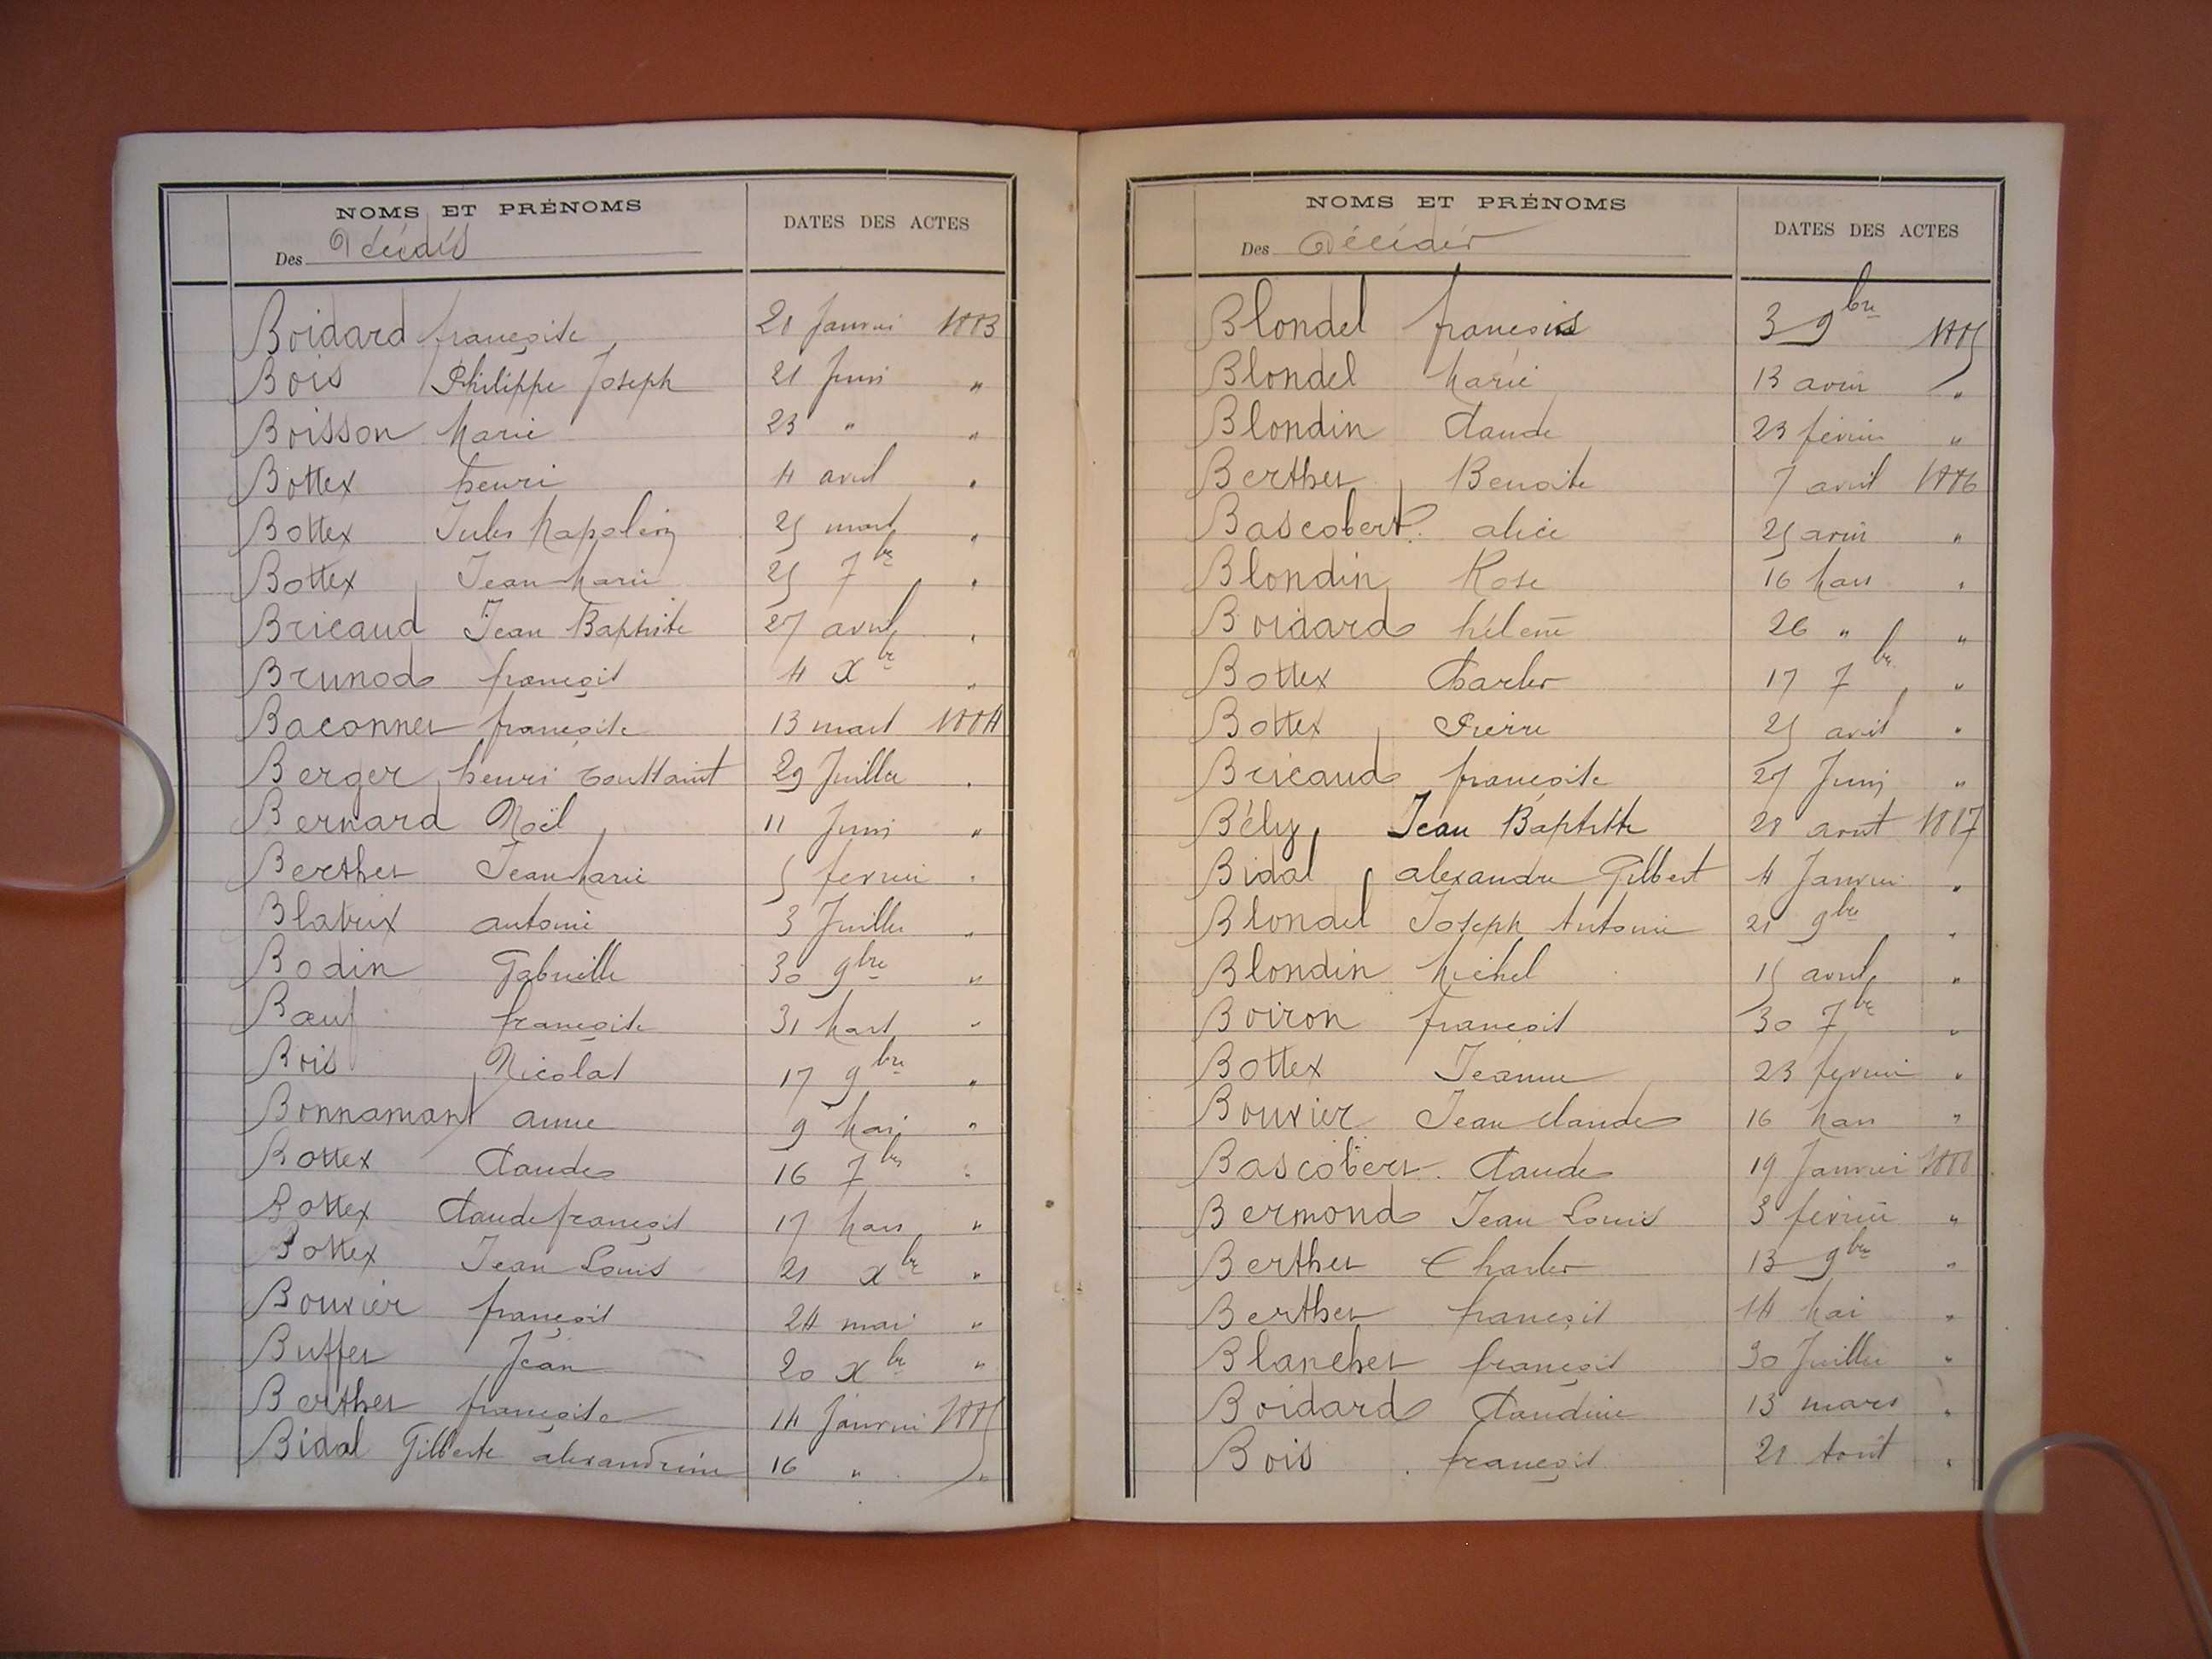 NOMS ET PRÉNOMS
Des Décédés
DATES DES ACTES
Boidard françoise 28 Janvier 1883
Bois Philippe Joseph 21 Juin "
Boisson Marie 23 " "
Bottex henri 4 avril "
Bottex Jules Napoléon 25 mars "
Bottex Jean Marie 25 7bre "
Bricaud Jean Baptiste 27 avril "
Brunod françois 4 Xbre "
Baconnet françoise 13 mars 1884
Berger henri Toussaint 29 Juillet "
Bernard Noël 11 Juin "
Berthet Jean Marie 5 fevrier "
Blatrix antoine 3 Juillet "
Bodin Gabrielle 30 9bre "
Bœuf françoise 31 Mars "
Bois Nicolas 17 9bre "
Bonnamant anne 9 Mai "
Bottex Claude 16 7bre "
Bottex Claude françois 17 Mars "
Bottex Jean Louis 21 Xbre "
Bouvier françois 24 mai "
Buffet Jean 20 Xbre "
Berthet françoise 14 Janvier 1885
Bidal Gilberte alexandrine 16 " "
NOMS ET PRÉNOMS
Des Décédés
DATES DES ACTES
Blondel françois 3 9bre 1885
Blondel Marie 13 avril "
Blondin Claude 23 février "
Berthet Benoite 7 avril 1886
Bascobert alice 25 avril "
Blondin Rose 16 Mars "
Boidard hélène 26 " "
Bottex Charles 17 7bre "
Bottex Pierre 25 avril "
Bricaud françoise 27 Juin "
Bély Jean Baptiste 28 aout 1887
Bidal alexandre Gilbert 4 Janvier "
Blondel Joseph Antoine 21 9bre "
Blondin Michel 15 avril "
Boiron françois 30 7bre "
Bottex Jeanne 23 fevrier "
Bouvier Jean Claude 16 Mars "
Bascobert Claude 19 Janvier 1888
Bermond Jean Louis 3 février "
Berthet Charles 13 9bre "
Berthet françois 14 Mai "
Blanchet françois 30 Juillet "
Boidard Claudine 13 mars "
Bois françois 21 Août "